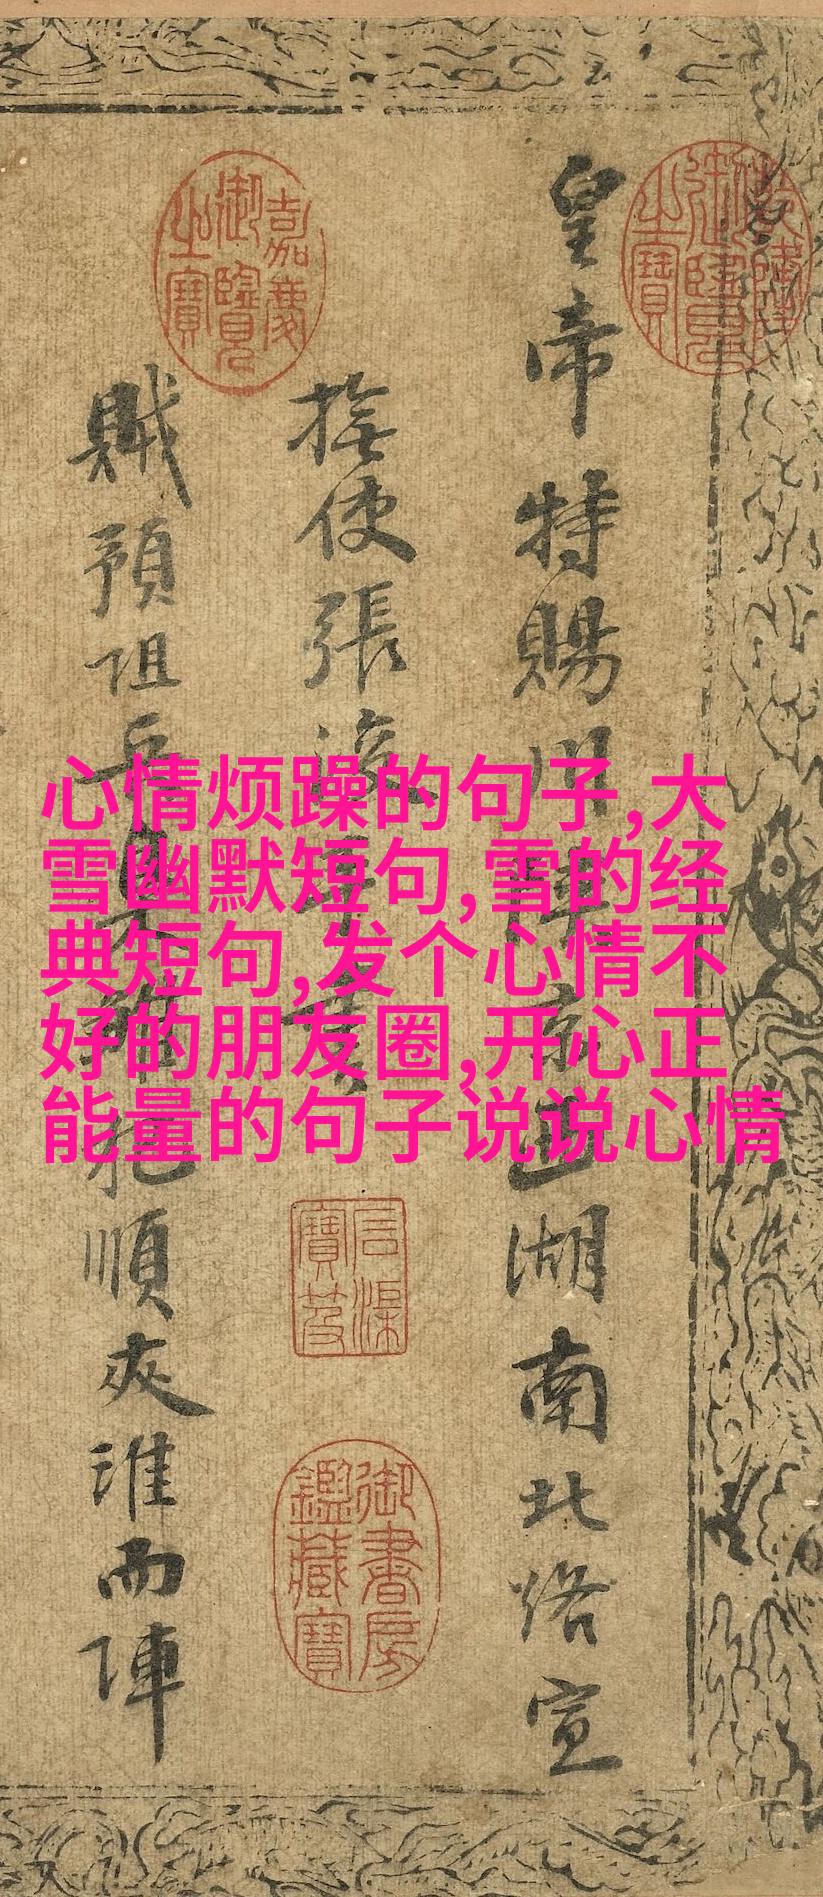 皇帝特賜川陝京西湖南北路宣
撫使張浚
賊預阻兵
順夾淮而陣
嘉慶御覽之寶
御書房鑑藏寶
心情烦躁的句子,大
雪幽默短句,雪的经
典短句,发个心情不
好的朋友圈,开心正
能量的句子说说心情